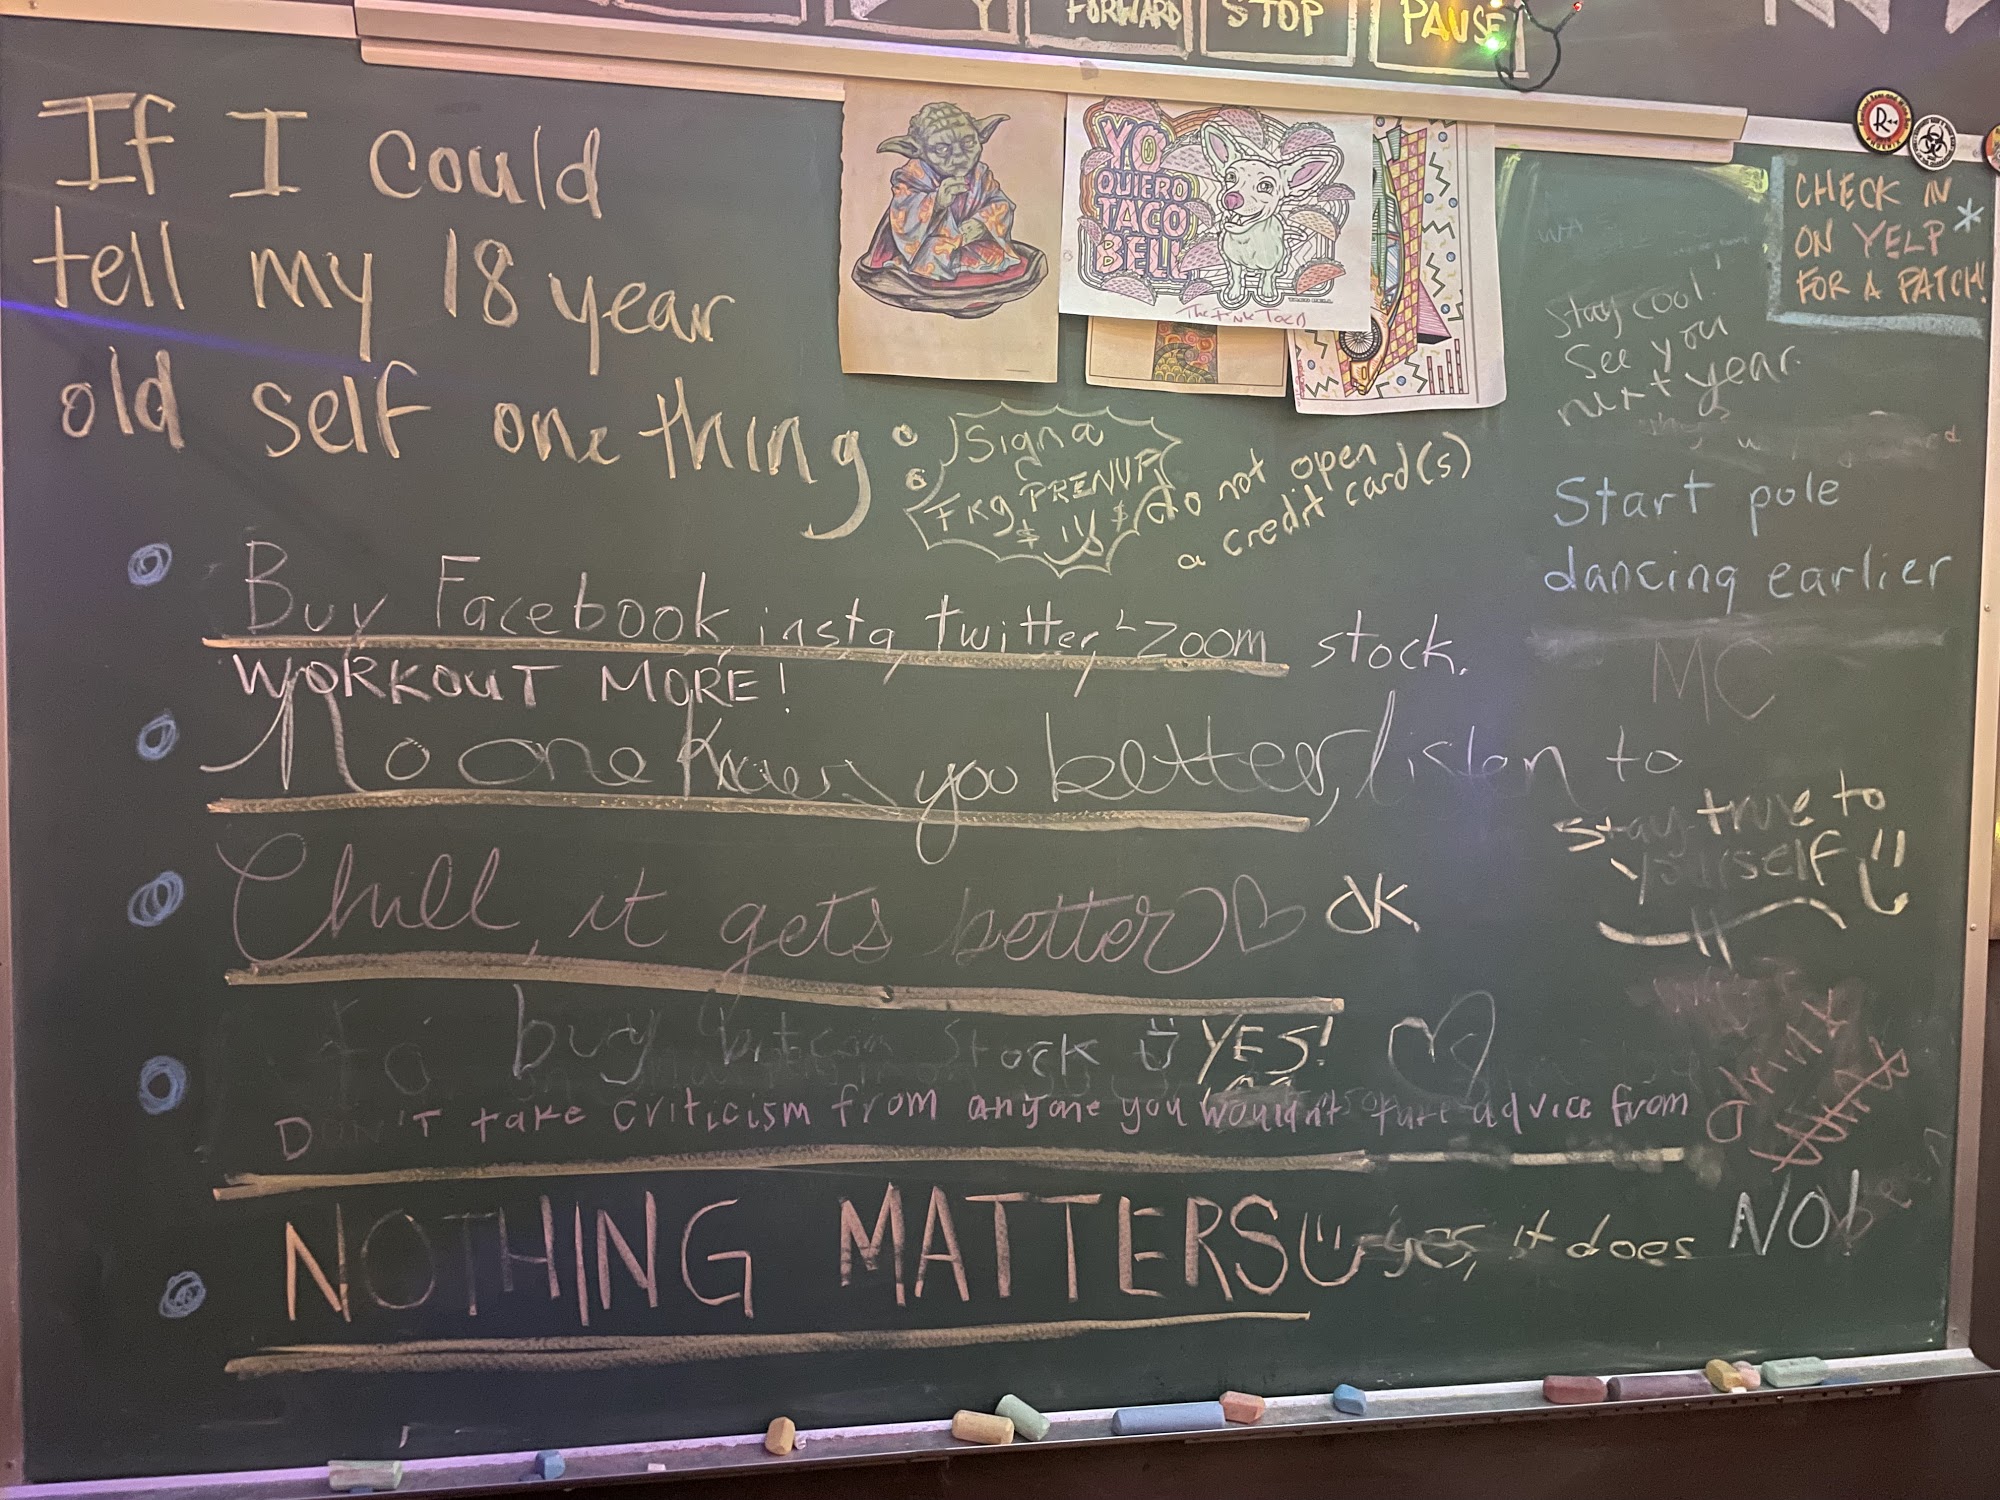 FORWARD
STOP
PAUSE
If I could
tell my 18 year
old self one thing:
YO
QUIERO
TACO
BELL
TACO BELL
R
CHECK IN
ON YELP *
FOR A PATCH!
Stay cool
See you
next year.
Sign a
Fkg PRENUP
$ $
do not open
a credit card(s)
Start pole
dancing earlier
Buy Facebook, insta, twitter, Zoom stock.
WORKOUT MORE!
MC
No one knows you better, listen to
stay true to
yourself
Chill, it gets better OK
buy bitcoin stock YES!
DON'T take criticism from anyone you wouldn't take advice from
drink
NOTHING MATTERS yes, it does NO!